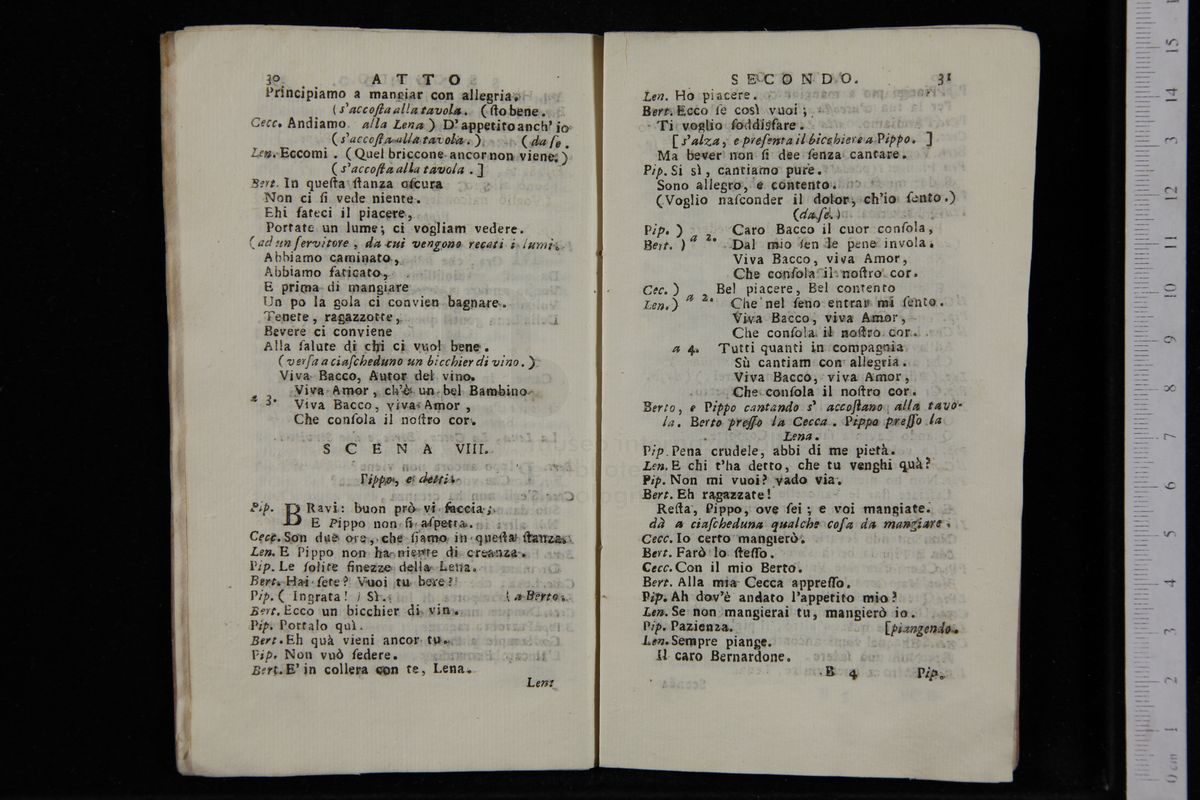 30 ATTO
Principiamo a mangiar con allegria.
(s'accoſta alla tavola. (ſto bene.
Cecc. Andiamo. alla Lena) D'appetito anch' io
(s'accoſta alla tavola.) (da ſe.
Len. Eccomi. (Quel briccone ancor non viene.)
(s'accoſta alla tavola.]
Bert. In queſta ſtanza oſcura
Non ci ſi vede niente.
Ehi fateci il piacere,
Portate un lume; ci vogliam vedere.
(ad un ſervitore, da cui vengono recati i lumi.
Abbiamo caminato,
Abbiamo faticato,
E prima di mangiare
Un po la gola ci convien bagnare.
Tenete, ragazzotte,
Bevere ci conviene
Alla ſalute di chi ci vuol bene.
(verſa a ciaſcheduno un bicchier di vino.)
Viva Bacco, Autor del vino.
Viva Amor, ch'è un bel Bambino
a 3. Viva Bacco, viva Amor,
Che conſola il noſtro cor.
SCENA VIII.
Pippo, e detti.
Pip. BRavi: buon prò vi faccia;
E Pippo non ſi aſpetta.
Cecc. Son due ore, che ſiamo in queſta ſtanza.
Len. E Pippo non ha niente di creanza.
Pip. Le ſolite finezze della Lena.
Bert. Hai ſete? Vuoi tu bere?
Pip. (Ingrata!) Sì. (a Berto.
Bert. Ecco un bicchier di vin.
Pip. Portalo quì.
Bert. Eh quà vieni ancor tu.
Pip. Non vuò ſedere.
Bert. E' in collera con te, Lena.
Len:
SECONDO. 31
Len. Ho piacere.
Bert. Ecco ſe così vuoi;
Ti voglio ſoddisfare.
[s'alza, e preſenta il bicchiere a Pippo.]
Ma bever non ſi dee ſenza cantare.
Pip. Si sì, cantiamo pure.
Sono allegro, e contento.
(Voglio naſconder il dolor, ch'io ſento.)
(da ſe.)
Pip. ) Caro Bacco il cuor conſola,
Bert. ) a 2. Dal mio ſen le pene invola.
Viva Bacco, viva Amor,
Che conſola il noſtro cor.
Cec. ) Bel piacere, Bel contento
Len. ) a 2. Che nel ſeno entrar mi ſento.
Viva Bacco, viva Amor,
Che conſola il noſtro cor.
a 4. Tutti quanti in compagnia
Sù cantiam con allegria.
Viva Bacco, viva Amor,
Che conſola il noſtro cor.
Berto, e Pippo cantando s' accoſtano alla tavo-
la. Berto preſſo la Cecca. Pippo preſſo la
Lena.
Pip. Pena crudele, abbi di me pietà.
Len. E chi t'ha detto, che tu venghi quà?
Pip. Non mi vuoi? vado via.
Bert. Eh ragazzate!
Reſta, Pippo, ove ſei; e voi mangiate.
dà a ciaſcheduna qualche coſa da mangiare.
Cecc. Io certo mangierò.
Bert. Farò lo ſteſſo.
Cecc. Con il mio Berto.
Bert. Alla mia Cecca appreſſo.
Pip. Ah dov'è andato l'appetito mio?
Len. Se non mangierai tu, mangierò io.
Pip. Pazienza. [piangendo.
Len. Sempre piange.
Il caro Bernardone.
B 4 Pip.